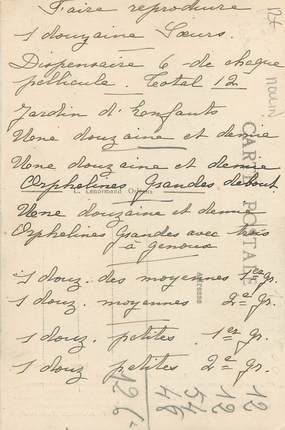 Faire reproduire
1 douzaine Sœurs.
Dispensaire 6 de chaque
pellicule. Total 12
Jardin d'Enfants
Une douzaine et demie
Une douzaine et demie
Orphelines Grandes debout
Une douzaine et demie
Orphelines Grandes avec trois
à genoux
1 douz. des moyennes 1re gr.
1 douz. moyennes 2e gr.
1 douz. petites 1er gr.
1 douz petites 2e gr.
CARTE POSTALE
Adresse
L. Lenormand
12
12
54
48
126